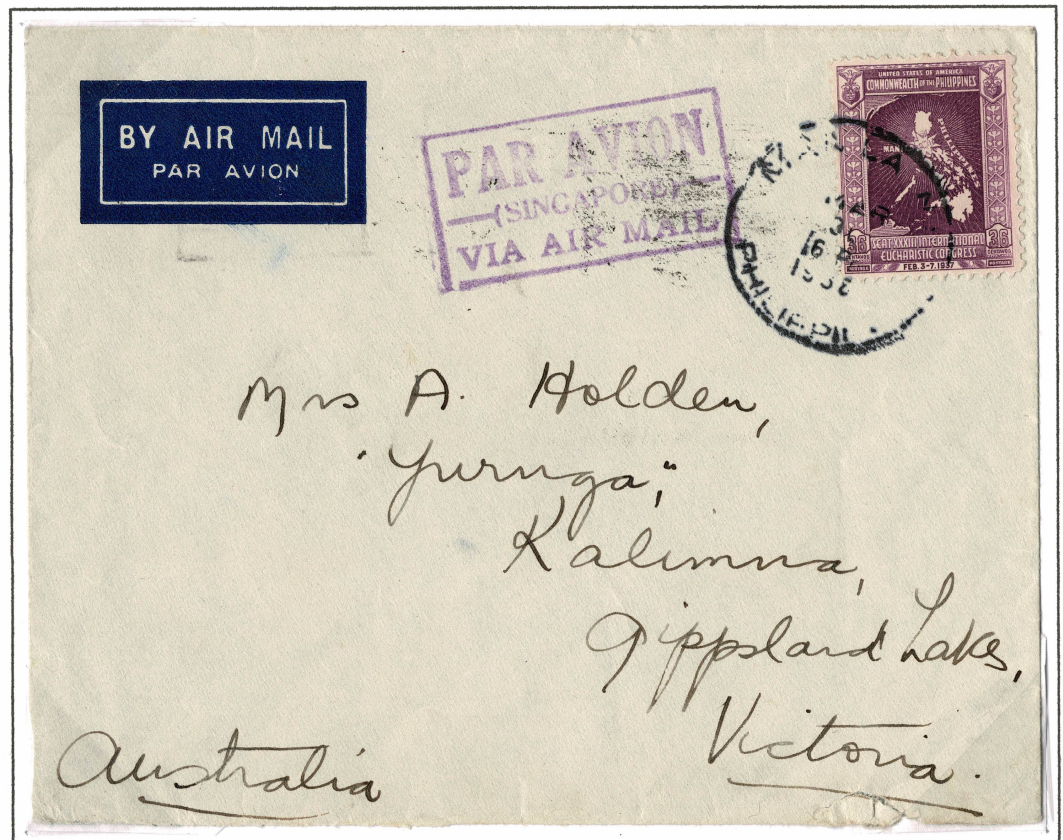 BY AIR MAIL
PAR AVION
PAR AVION
(SINGAPORE)
VIA AIR MAIL
UNITED STATES OF AMERICA
COMMONWEALTH OF THE PHILIPPINES
PHILIPPINES
36 SEAT XXXIII INTERNATIONAL 36
EUCHARISTIC CONGRESS
FEB. 3-7, 1937
MANILA
MAR
Mrs A. Holden,
"Yurunga,"
Kalimna,
Gippsland Lakes,
Victoria.
Australia